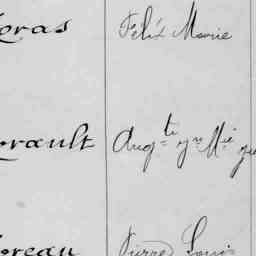 oras Félix Marie
rault Aug^te
oreau Pierre Louis